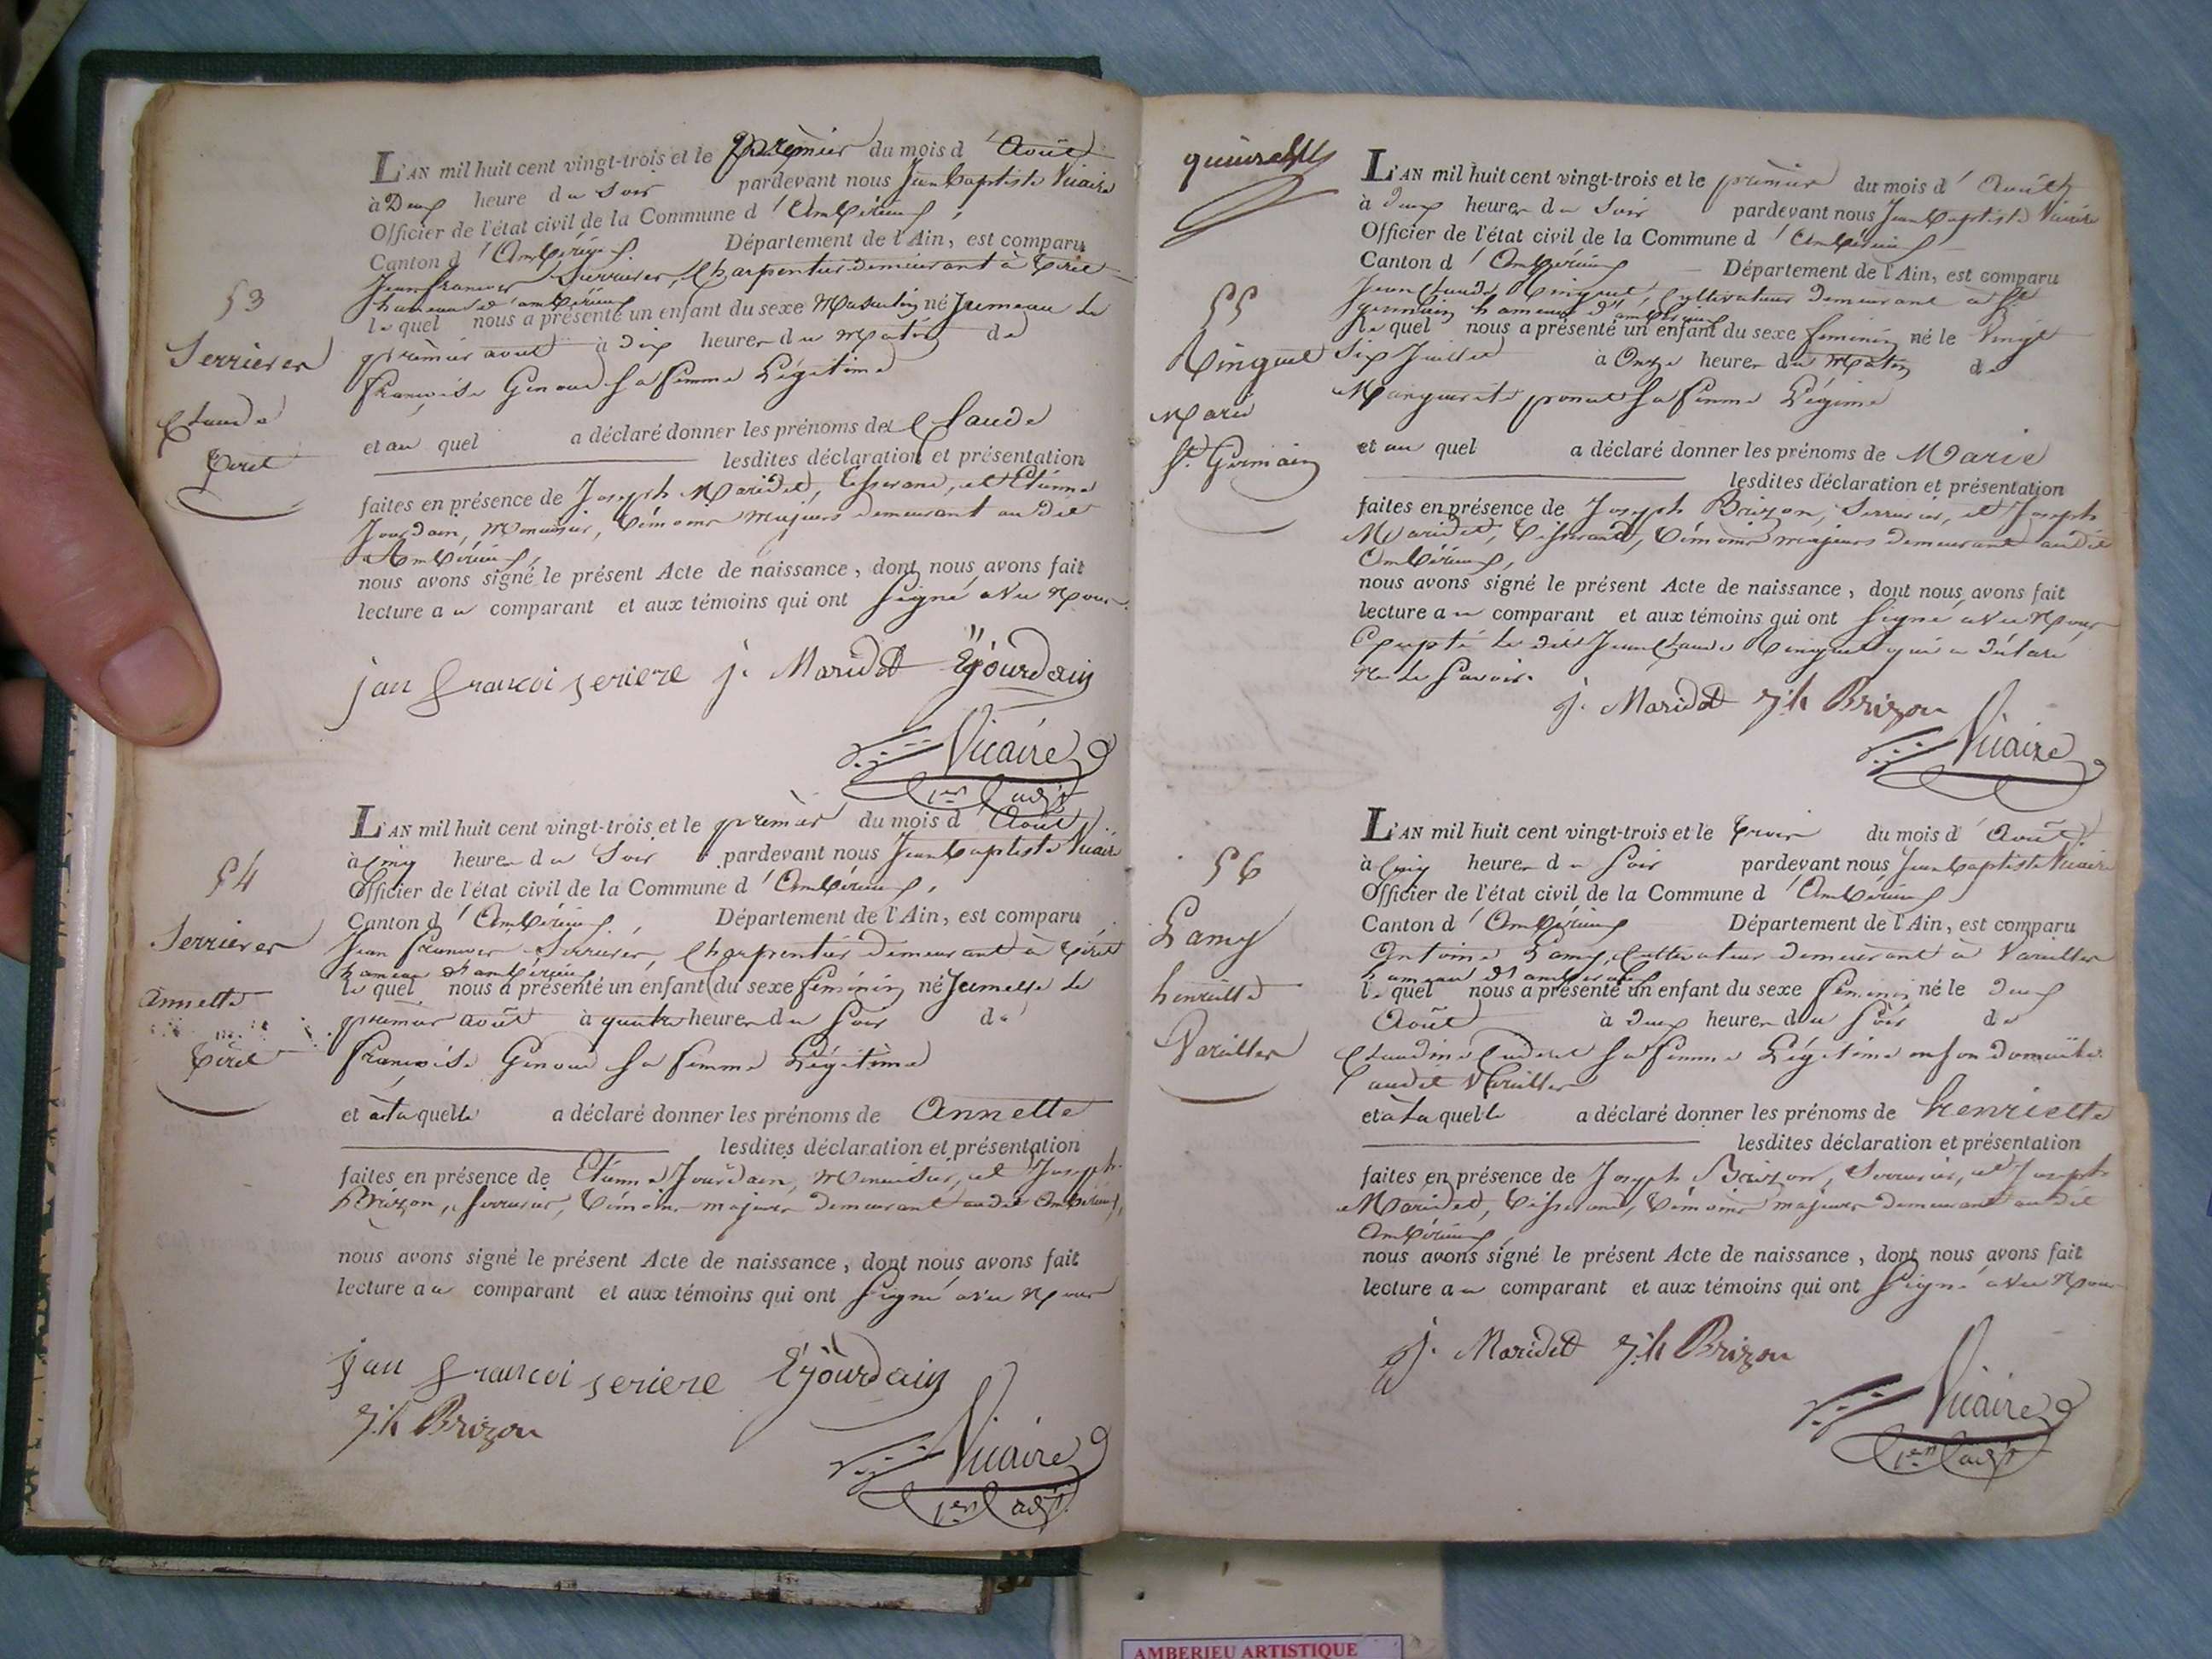 L'AN mil huit cent vingt-trois et le premier du mois d'Août
à Deux heure du Soir pardevant nous Jean Baptiste Vicaire
Officier de l'état civil de la Commune d'Ambérieux,
Canton d'Ambérieux Département de l'Ain, est comparu
Jean françois Serrieres, Charpentier demeurant à Tiret
hameau d'ambérieux
53
le quel nous a présenté un enfant du sexe Masculin né Jumeau le
Serrieres
premier aout à dix heures du Matin de
françoise Genoud Sa femme Légitime
Claude
et au quel a déclaré donner les prénoms de Claude
Tiret
lesdites déclaration et présentation
faites en présence de Joseph Maridet, tisserand, et Etienne
Jourdain, Menuisier, témoins majeurs demeurant au dit
Ambérieux,
nous avons signé le présent Acte de naissance, dont nous avons fait
lecture au comparant et aux témoins qui ont Signé avec Nous
jan francoi seriere j. Maridet E Jourdain
Vicaire
1er adjt
L'AN mil huit cent vingt-trois et le premier du mois d'Août
à Cinq heures du Soir pardevant nous Jean Baptiste Vicaire
54
Officier de l'état civil de la Commune d'Ambérieux,
Canton d'Ambérieux Département de l'Ain, est comparu
Serrieres
Jean françois Serrieres, Charpentier demeurant à Tiret
hameau d'ambérieux
le quel nous a présenté un enfant du sexe féminin né Jumelle le
Annette
premier août à quatre heures du Soir de
Tiret
françoise Genoud Sa femme Légitime
et à la quelle a déclaré donner les prénoms de Annette
lesdites déclaration et présentation
faites en présence de Etienne Jourdain, Menuisier, et Joseph
Brizon, Serrurier, témoins majeurs demeurant audit Ambérieux,
nous avons signé le présent Acte de naissance, dont nous avons fait
lecture au comparant et aux témoins qui ont Signé avec Nous
jan francoi seriere E Jourdain
Jh Brizon
Vicaire
1er adjt
L'AN mil huit cent vingt-trois et le premier du mois d'Août
à deux heures du Soir pardevant nous Jean Baptiste Vicaire
Officier de l'état civil de la Commune d'Ambérieux
Canton d'Ambérieux Département de l'Ain, est comparu
Jean Claude Tinguet, Cultivateur demeurant à St
55
germain hameau d'ambérieux
le quel nous a présenté un enfant du sexe féminin né le Vingt
Tinguet
Six Juillet à Onze heures du Matin de
Marguerite ponat Sa femme Légime
Marie
et au quel a déclaré donner les prénoms de Marie
St Germain
lesdites déclaration et présentation
faites en présence de Joseph Brizon, Serrurier, et Joseph
Maridet, tisserand, témoins majeurs demeurant audit
Ambérieux,
nous avons signé le présent Acte de naissance, dont nous avons fait
lecture au comparant et aux témoins qui ont Signé avec Nous
Excepté le dit Jean Claude Tinguet qui a déclaré
Ne le Savoir.
j. Maridet Jh Brizon
Vicaire
L'AN mil huit cent vingt-trois et le trois du mois d'Août
à Cinq heures du Soir pardevant nous Jean Baptiste Vicaire
56
Officier de l'état civil de la Commune d'Ambérieux
Canton d'Ambérieux Département de l'Ain, est comparu
Lamy
Antoine Lamy, Cultivateur demeurant à Vareilles
hameau d'ambérieux
henriette
le quel nous a présenté un enfant du sexe féminin né le deux
Août à deux heures du Soir de
Vareilles
Claudine Sa femme Légitime en son domicile
audit Vareilles
et à la quelle a déclaré donner les prénoms de henriette
lesdites déclaration et présentation
faites en présence de Joseph Brizon, Serrurier, et Joseph
Maridet, tisserand, témoins majeurs demeurant au dit
Ambérieux,
nous avons signé le présent Acte de naissance, dont nous avons fait
lecture au comparant et aux témoins qui ont Signé avec Nous
j. Maridet Jh Brizon
Vicaire
1er adjt
AMBERIEU ARTISTIQUE